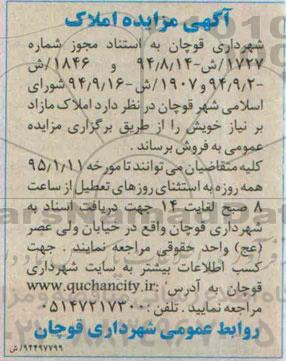 آگهی مزایده املاک
شهرداری قوچان به استناد مجوز شماره
۱۷۲۷/ش-۹۴/۸/۱۴ و ۱۸۴۶/ش
-۹۴/۹/۲ و ۱۹۰۷/ش-۹۴/۹/۱۶ شورای
اسلامی شهر قوچان در نظر دارد املاک مازاد
بر نیاز خویش را از طریق برگزاری مزایده
عمومی به فروش برساند.
کلیه متقاضیان می توانند تا مورخه ۹۵/۱/۱۱
همه روزه به استثنای روزهای تعطیل از ساعت
۸ صبح لغایت ۱۴ جهت دریافت اسناد به
شهرداری قوچان واقع در خیابان ولی عصر
(عج) واحد حقوقی مراجعه نمایند. جهت
کسب اطلاعات بیشتر به سایت شهرداری
قوچان به آدرس: www.quchancity.ir
مراجعه نمایید. تلفن: ۰۵۱۴۷۲۱۷۳۰۰
روابط عمومی شهرداری قوچان
۹۴۴۹۷۷۹۹/ش